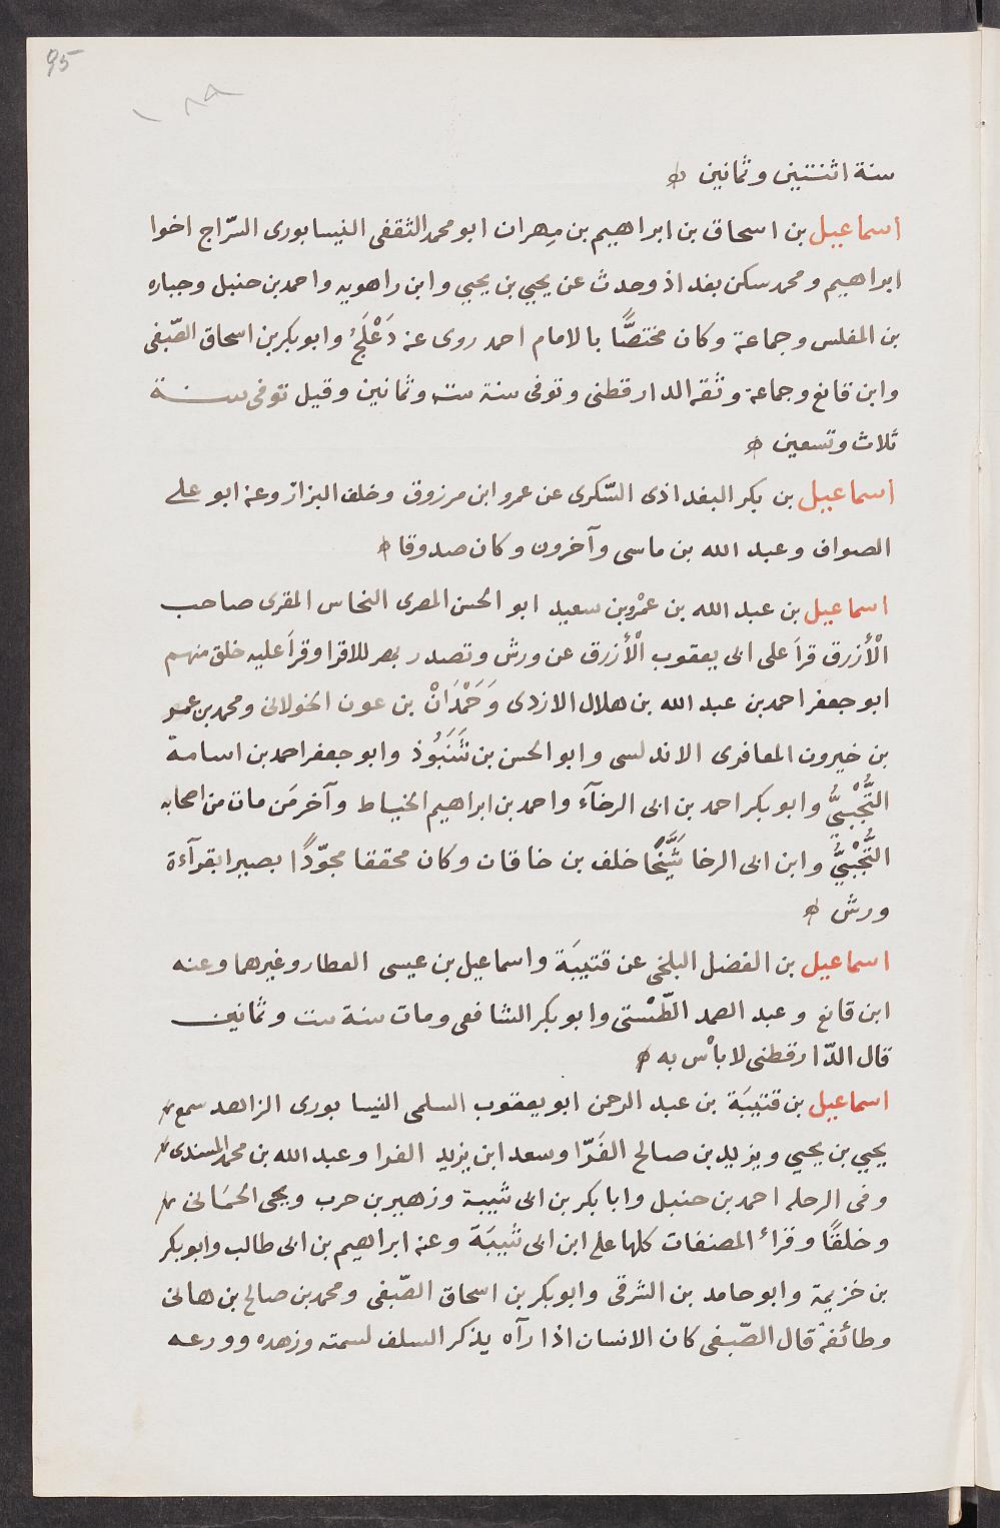 95
١٨٩
سنة اثنتين وثمانين
اسماعيل بن اسحاق بن ابراهيم بن مِهران ابو محمد الثقفى النيسابورى السّراج اخوا
ابراهيم ومحمد سكن بغداذ وحدث عن يحيي بن يحيي وابن راهويه واحمد بن حنبل وجباره
بن المغلس وجماعة وكان مختصًّا بالامام احمد روى عنه دَعْلَجُ وابو بكر بن اسحاق الصّبغى
وابن قانع وجماعة وثقه الدارقطنى وتوفى سنة ست وثمانين وقيل توفى سنة
ثلاث وتسعين
اسماعيل بن بكر البغداذى السّكرى عن عمرو ابن مرزوق وخلف البزاز وعنه ابو على
الصواف وعبد الله بن ماسى وآخرون وكان صدوقا
اسماعيل بن عبد الله بن عمْرو بن سعيد ابو الحسن المصرى النخاس المقرى صاحب
الْأزرق قرأ على ابى يعقوب الْأزرق عن ورش وتصدر بمصر للاقرا وقرأ عليه خلق منهم
ابو جعفر احمد بن عبد الله بن هلال الازدى وَحَمْدَانْ بن عون الخولانى ومحمد بن عمر
بن خيرون المعافرى الاندلسى وابو الحسن بن شَنَبُوذ وابو جعفر احمد بن اسامة
التُّجْبىُّ وابو بكر احمد بن ابى الرخآء واحمد بن ابراهيم الخياط وآخر مَن مات من اصحابه
التُّجْبيُّ وابن ابى الرخا شَيَّخًا خلف بن خاقان وكان محققا مجوّدًا بصيرا بقرآءة
ورش
اسماعيل بن الفضل البلخى عن قتيبَة واسماعيل بن عيسى العطار وغيرهما وعنه
ابن قانع وعبد الصمد الطّسْتى وابو بكر الشافعى ومات سنة ست وثمانين
قال الدّارقطنى لا بأس به
اسماعيل بن قتيبَة بن عبد الرحمن ابو يعقوب السلمى النيسابورى الزاهد سمع
يحيي بن يحيي ويزيد بن صالح الفَرّا وسعد ابن يزيد الفرا وعبد الله بن محمد المسندى
وفى الرحله احمد بن حنبل وابا بكر بن ابى شيبة وزهير بن حرب ويحيى الحمَانى
وخلقًا وقراء المصنفات كلها على ابن ابى شيبَة وعنه ابراهيم بن ابى طالب وابو بكر
بن خزيمة وابو حامد بن الشرقى وابو بكر بن اسحاق الصّبغى ومحمد بن صالح بن هانى
وطائفة قال الصّبغى كان الانسان اذا رآه يذكر السلف لسمته وزهده وورعه